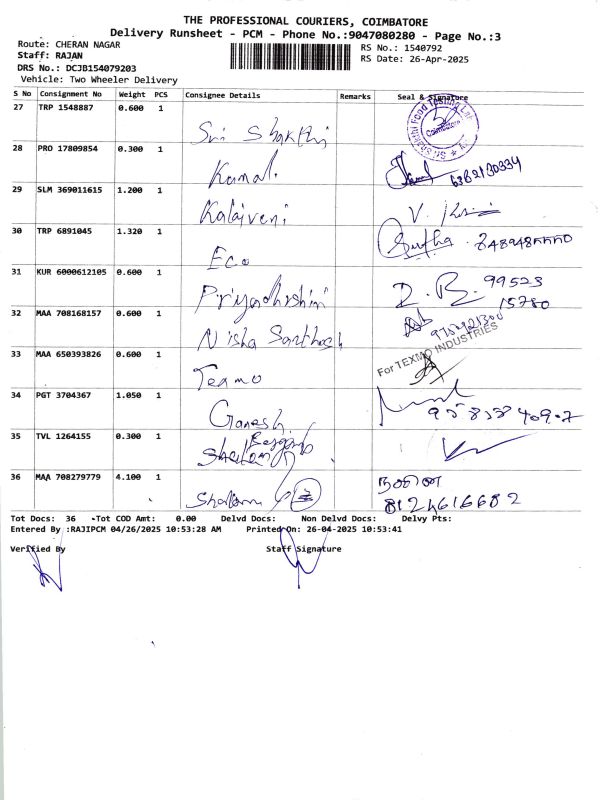 THE PROFESSIONAL COURIERS, COIMBATORE
Delivery Runsheet - PCM - Phone No.:9047080280 - Page No.:3
Route: CHERAN NAGAR
Staff: RAJAN
DRS No.: DCJB154079203
Vehicle: Two Wheeler Delivery
RS No.: 1540792
RS Date: 26-Apr-2025
S No Consignment No Weight PCS Consignee Details Remarks Seal & Signature
27 TRP 1548887 0.600 1 Sri Shakthi
Sri Shakthi Food Testing Lab Coimbatore
28 PRO 17809854 0.300 1 Kamal 6382130334
29 SLM 369011615 1.200 1 Kalaiveni V.
30 TRP 6891045 1.320 1 Eco
31 KUR 6000612105 0.600 1 Priyadharshini 99523
15780
32 MAA 708168157 0.600 1 Nisha Santhosh
33 MAA 650393826 0.600 1 Texmo For TEXMO INDUSTRIES
34 PGT 3704367 1.050 1 Ganesh
35 TVL 1264155 0.300 1
36 MAA 708279779 4.100 1
8124616682
Tot Docs: 36 Tot COD Amt: 0.00 Delvd Docs: Non Delvd Docs: Delvy Pts:
Entered By :RAJIPCM 04/26/2025 10:53:28 AM Printed On: 26-04-2025 10:53:41
Verified By Staff Signature